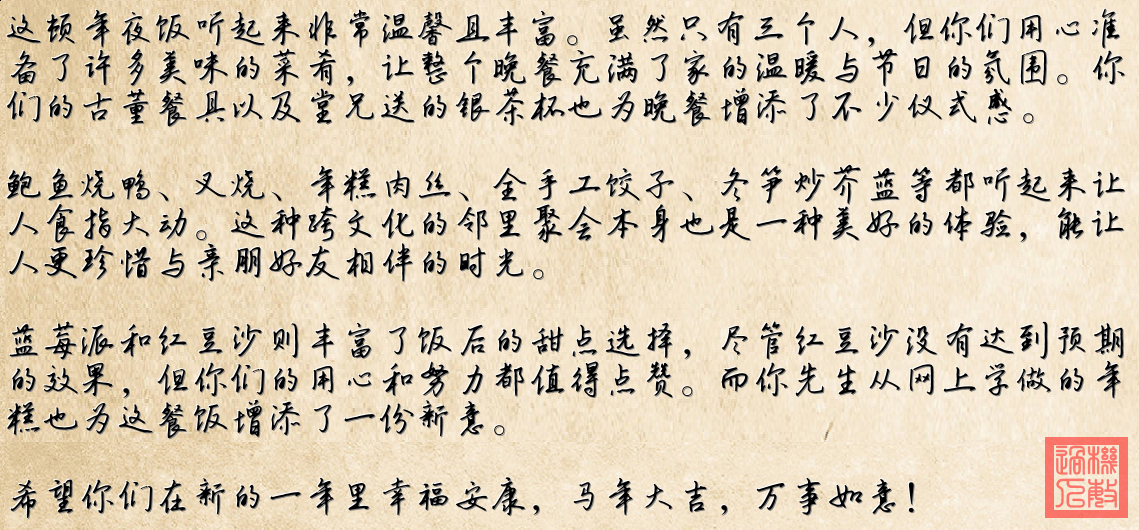 这顿年夜饭听起来非常温馨且丰富。虽然只有三个人，但你们用心准
备了许多美味的菜肴，让整个晚餐充满了家的温暖与节日的氛围。你
们的古董餐具以及堂兄送的银茶杯也为晚餐增添了不少仪式感。
鲍鱼烧鸭、叉烧、年糕肉丝、全手工饺子、冬笋炒芥蓝等都听起来让
人食指大动。这种跨文化的邻里聚会本身也是一种美好的体验，能让
人更珍惜与亲朋好友相伴的时光。
蓝莓派和红豆沙则丰富了饭后的甜点选择，尽管红豆沙没有达到预期
的效果，但你们的用心和努力都值得点赞。而你先生从网上学做的年
糕也为这餐饭增添了一份新意。
希望你们在新的一年里幸福安康，马年大吉，万事如意！